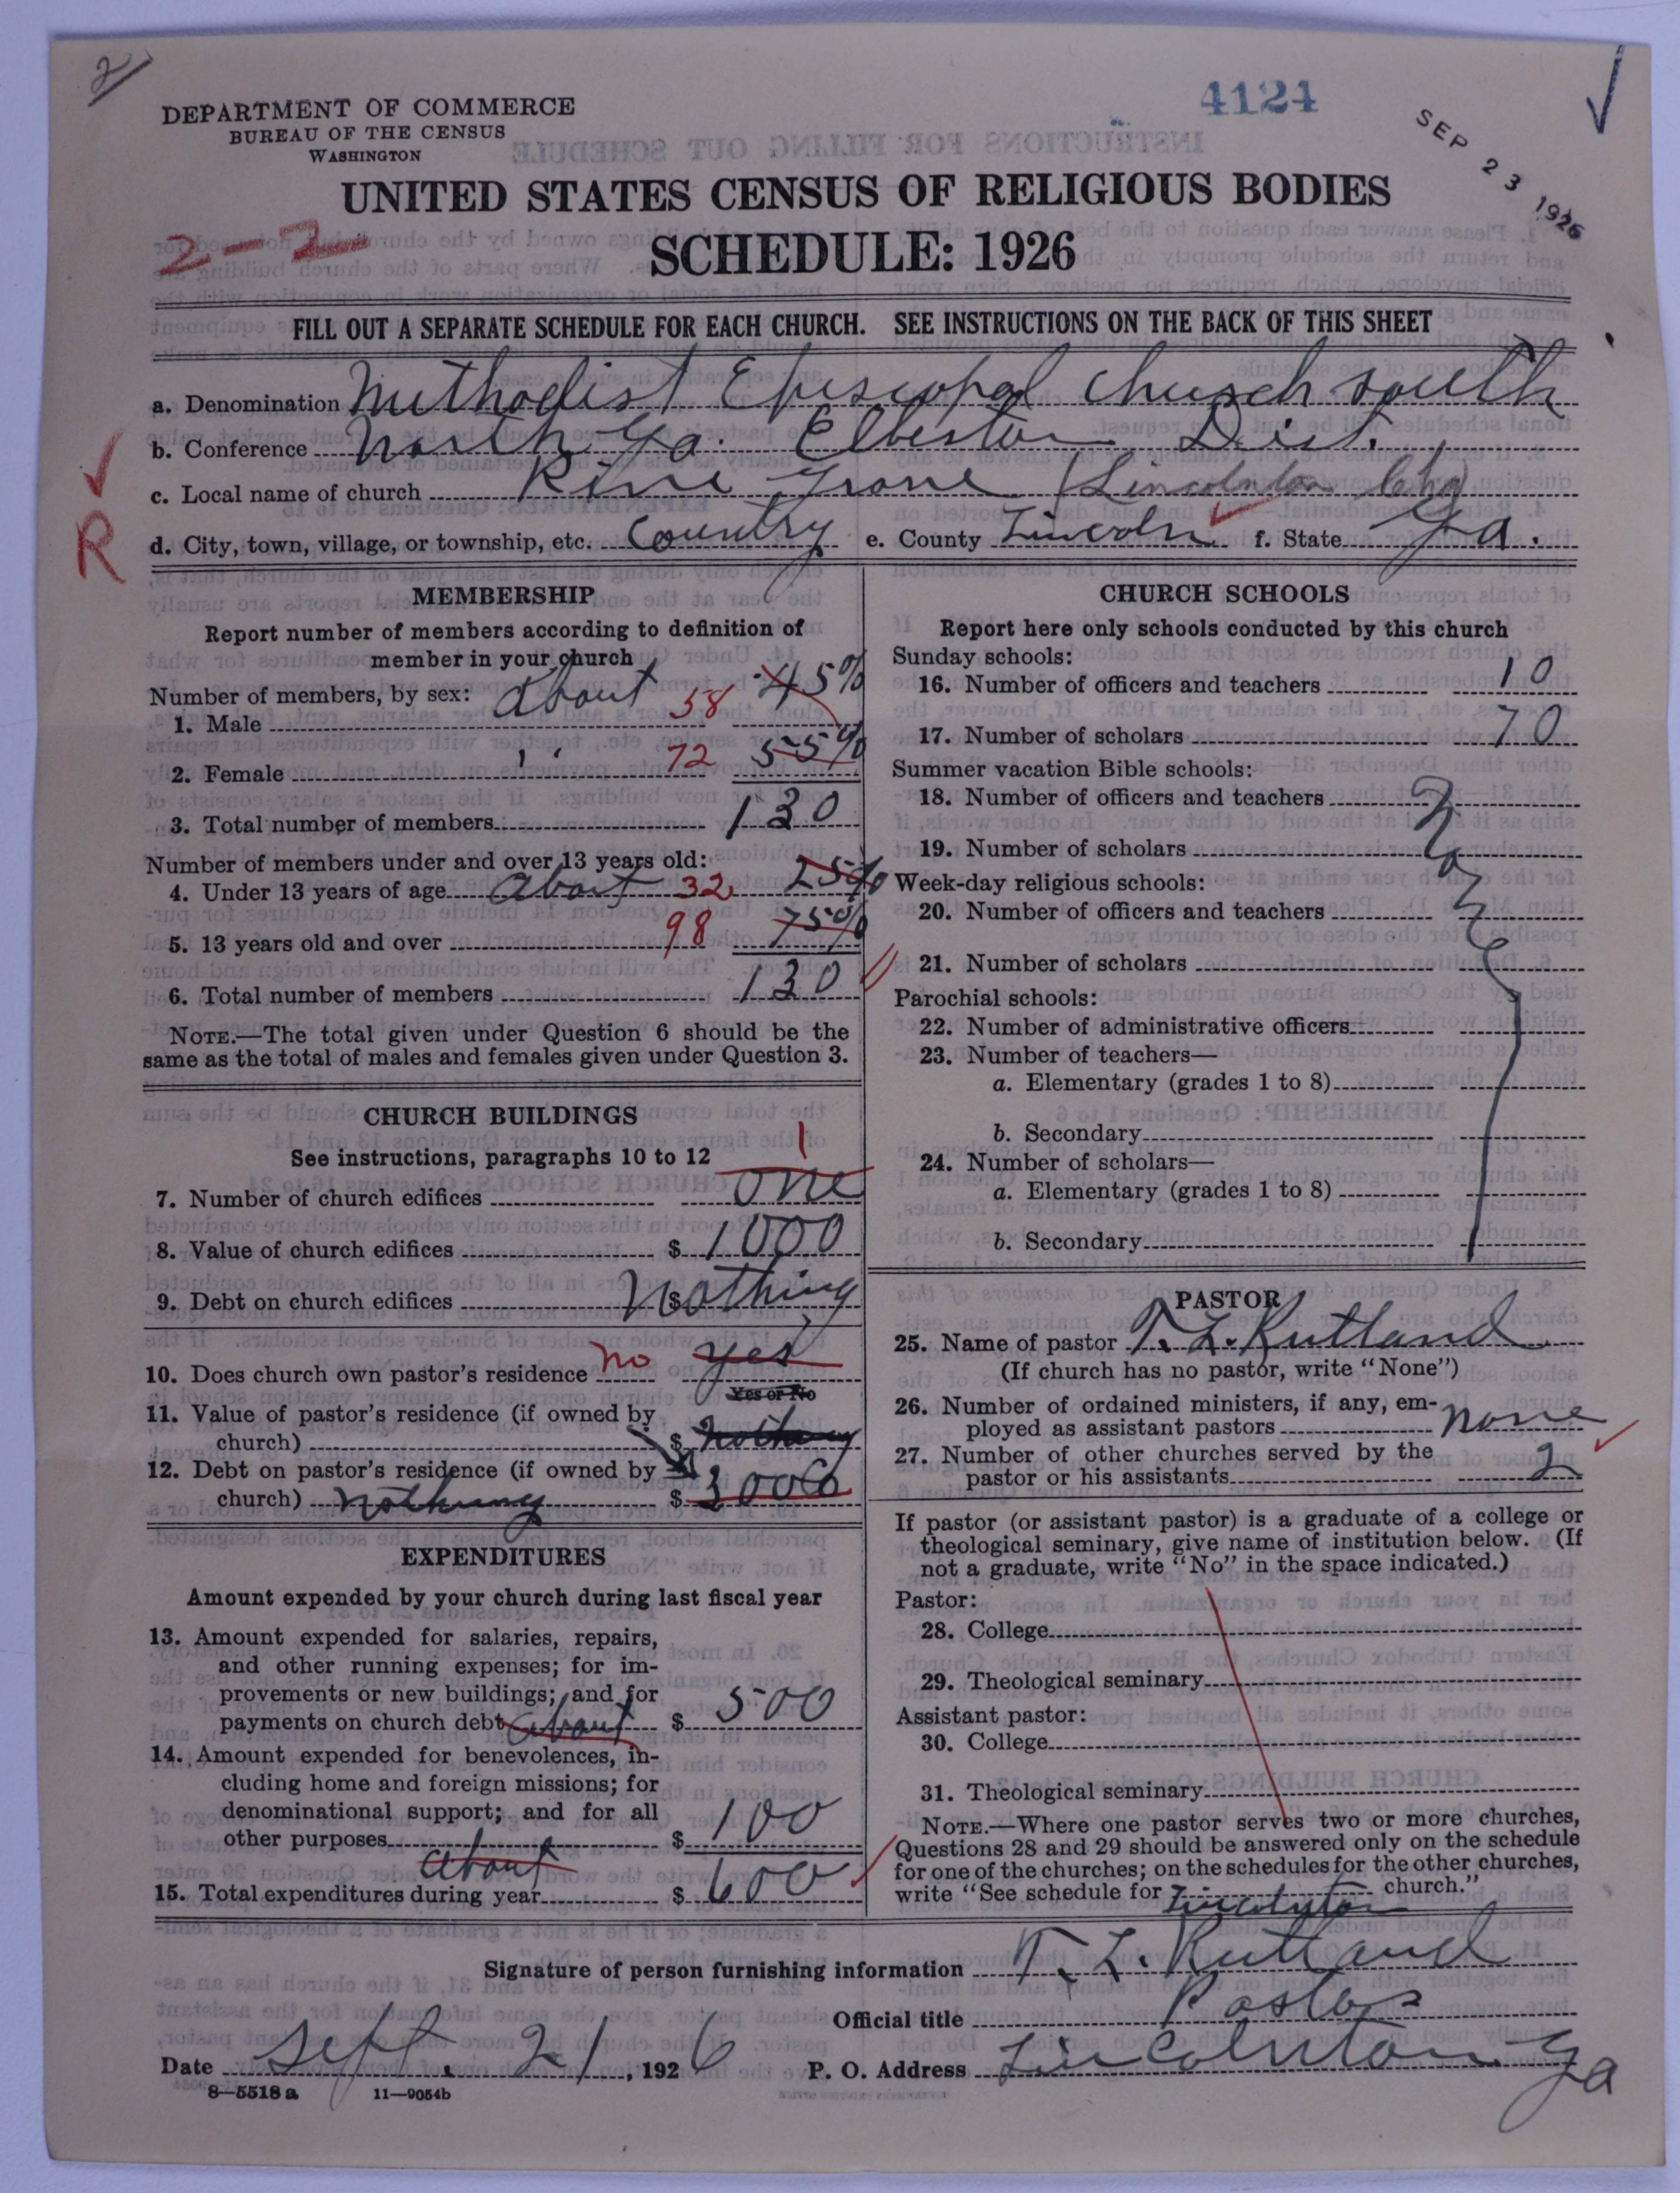 2/
4124
SEP 23 1926
DEPARTMENT OF COMMERCE
BUREAU OF THE CENSUS
WASHINGTON
UNITED STATES CENSUS OF RELIGIOUS BODIES
2-2
SCHEDULE: 1926
FILL OUT A SEPARATE SCHEDULE FOR EACH CHURCH. SEE INSTRUCTIONS ON THE BACK OF THIS SHEET
a. Denomination Methodist Episcopal Church South
b. Conference North Ga. Elberton Dist.
c. Local name of church Pine Grove (Lincolnton Chg)
R
d. City, town, village, or township, etc. Country e. County Lincoln f. State Ga.
MEMBERSHIP
Report number of members according to definition of
member in your church
Number of members, by sex: About
1. Male 58 45%
2. Female " 72 55%
3. Total number of members 130
Number of members under and over 13 years old:
4. Under 13 years of age About 32 25%
5. 13 years old and over 98 75%
6. Total number of members 130
NOTE.—The total given under Question 6 should be the
same as the total of males and females given under Question 3.
CHURCH BUILDINGS
See instructions, paragraphs 10 to 12
1
7. Number of church edifices one
8. Value of church edifices $ 1000
9. Debt on church edifices $ Nothing
10. Does church own pastor's residence no yes
Yes or No
11. Value of pastor's residence (if owned by
church) $ Nothing
12. Debt on pastor's residence (if owned by
church) Nothing $ 3000
EXPENDITURES
Amount expended by your church during last fiscal year
13. Amount expended for salaries, repairs,
and other running expenses; for im-
provements or new buildings; and for
payments on church debt About $ 500
14. Amount expended for benevolences, in-
cluding home and foreign missions; for
denominational support; and for all
other purposes $ 100
About
15. Total expenditures during year $ 600
CHURCH SCHOOLS
Report here only schools conducted by this church
Sunday schools:
16. Number of officers and teachers 10
17. Number of scholars 70
Summer vacation Bible schools:
18. Number of officers and teachers None
19. Number of scholars
Week-day religious schools:
20. Number of officers and teachers
21. Number of scholars
Parochial schools:
22. Number of administrative officers
23. Number of teachers—
a. Elementary (grades 1 to 8)
b. Secondary
24. Number of scholars—
a. Elementary (grades 1 to 8)
b. Secondary
PASTOR
25. Name of pastor T. L. Rutland
(If church has no pastor, write "None")
26. Number of ordained ministers, if any, em-
ployed as assistant pastors none
27. Number of other churches served by the
pastor or his assistants 2
If pastor (or assistant pastor) is a graduate of a college or
theological seminary, give name of institution below. (If
not a graduate, write "No" in the space indicated.)
Pastor:
28. College
29. Theological seminary
Assistant pastor:
30. College
31. Theological seminary
NOTE.—Where one pastor serves two or more churches,
Questions 28 and 29 should be answered only on the schedule
for one of the churches; on the schedules for the other churches,
write "See schedule for Lincolnton church."
Signature of person furnishing information T. L. Rutland
Official title Pastor
Date Sept. 21, 1926 P. O. Address Lincolnton Ga
8—5518 a 11—9054b